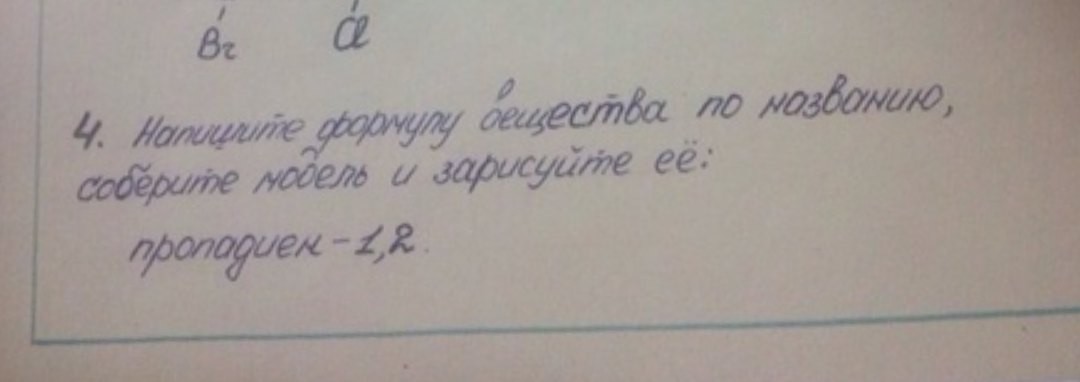 Br Cl
4. Напишите формулу вещества по названию,
соберите модель и зарисуйте её:
пропадиен-1,2.